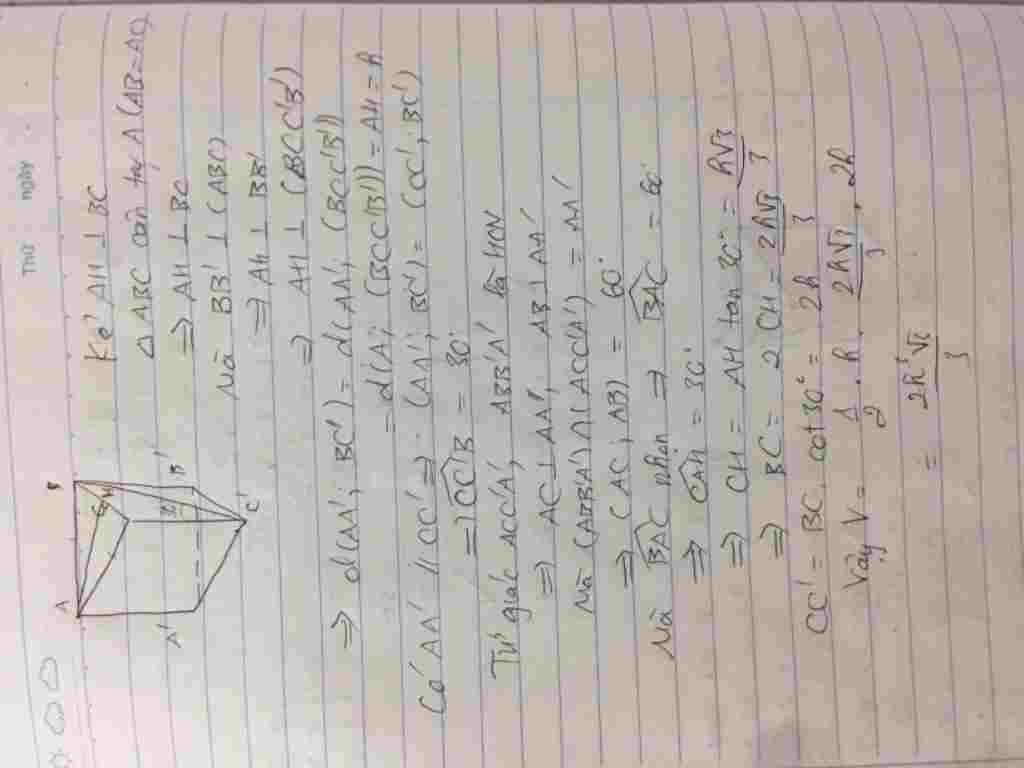 THỨ NGÀY
A
B
H
A'
B'
C'
Kẻ AH ⊥ BC
Δ ABC cân tại A (AB = AC)
=> AH ⊥ BC
Mà BB' ⊥ (ABC)
=> AH ⊥ BB'
=> AH ⊥ (BCC'B')
=> d(AA'; BC') = d(AA'; (BCC'B'))
= d(A; (BCC'B')) = AH = R
Có AA' // CC' => (AA'; BC') = (CC'; BC')
=> CC'B = 30°
Tứ giác ACC'A', ABB'A' là HCN
=> AC ⊥ AA', AB ⊥ AA'
Mà (ABB'A') ∩ (ACC'A') = AA'
=> (AC; AB) = 60°
Mà BAC nhọn => BAC = 60°
=> CAH = 30°
=> CH = AH tan 30° = R√3/3
=> BC = 2 CH = 2R√3/3
CC' = BC. cot 30° = 2R
Vậy V = 1/2 . R . 2R√3/3 . 2R
= 2R³√3/3